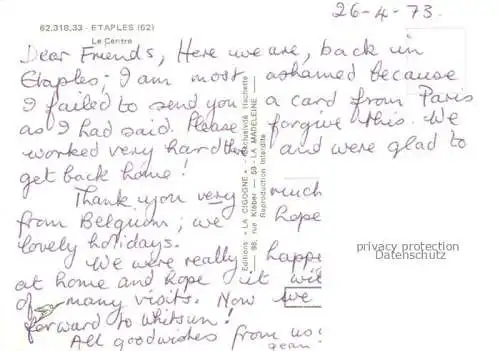 26-4-73.
62.318.33 - ETAPLES (62)
Le Centre
Dear Friends, Here we are, back in
Etaples; I am most ashamed because
I failed to send you a card from Paris
as I had said. Please forgive this. We
worked very hard there and were glad to
get back home!
Thank you very much
from Belgium; we hope
lovely holidays.
We were really happ
at home and hope it wil
of many visits. Now we
forward to whitsun!
All goodwishes from us
Jean
Editions « LA CIGOGNE » - Exclusivité Hachette
98, rue Kléber — 59 - LA MADELEINE
Reproduction interdite
privacy protection
Datenschutz